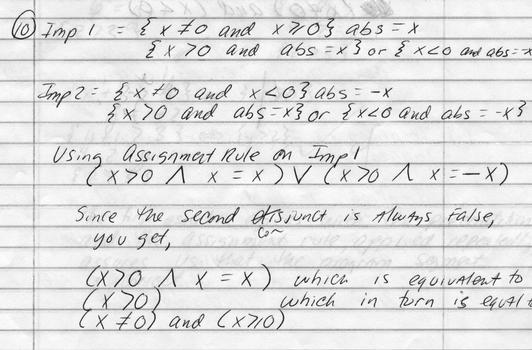 ⑩ Imp 1 = { x ≠ 0 and x ≥ 0 } abs = x
{ x > 0 and abs = x } or { x < 0 and abs = -x
Imp 2 = { x ≠ 0 and x < 0 } abs = -x
{ x > 0 and abs = x } or { x < 0 and abs = -x }
Using Assignment Rule on Imp 1
(x > 0 ∧ x = x) ∨ (x > 0 ∧ x = -x)
Since the second disjunct is Always False,
con
you get,
(x > 0 ∧ x = x) which is equivalent to
(x > 0) which in turn is equal t
(x ≠ 0) and (x ≥ 0)